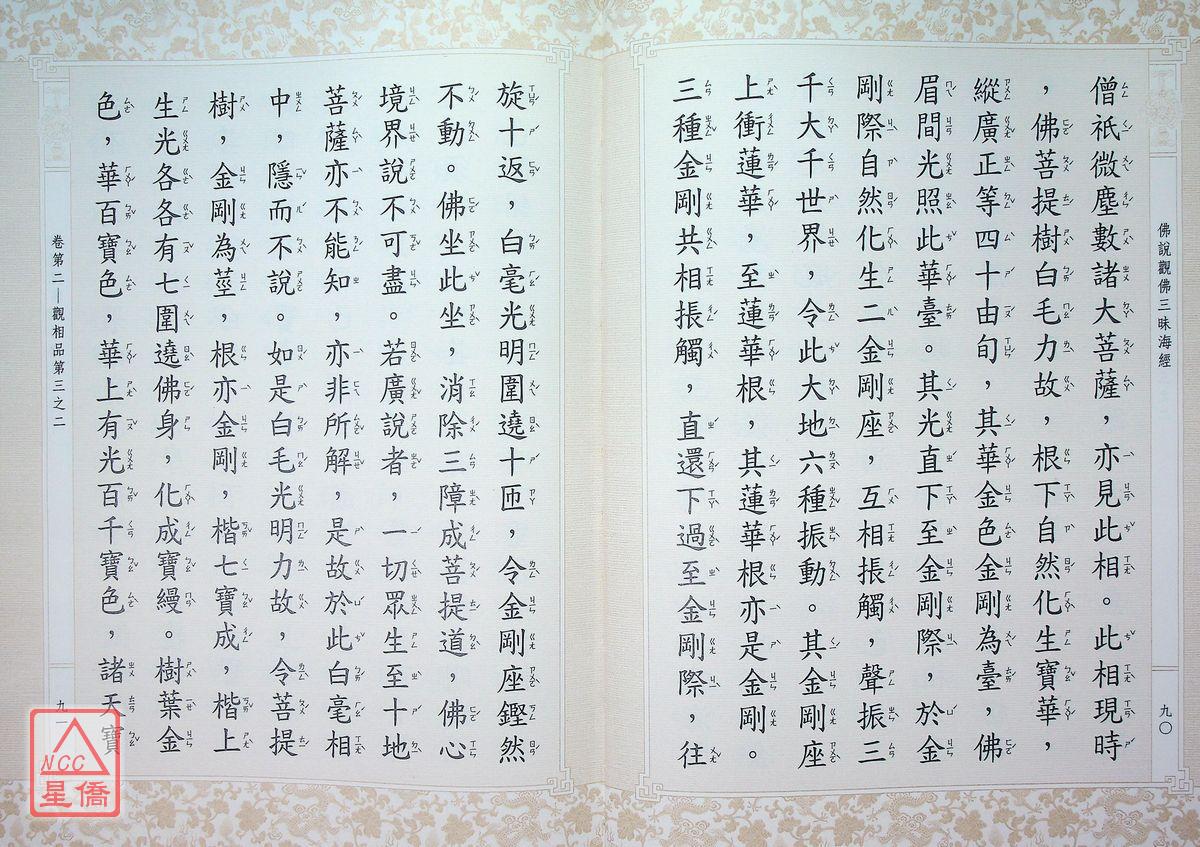 佛說觀佛三昧海經
九〇
僧祇微塵數諸大菩薩，亦見此相。此相現時
，佛菩提樹白毛力故，根下自然化生寶華，
縱廣正等四十由旬，其華金色金剛為臺，佛
眉間光照此華臺。其光直下至金剛際，於金
剛際自然化生二金剛座，互相振觸，聲振三
千大千世界，令此大地六種振動。其金剛座
上衝蓮華，至蓮華根，其蓮華根亦是金剛。
三種金剛共相振觸，直還下過至金剛際，往
旋十返，白毫光明圍遶十匝，令金剛座鏗然
不動。佛坐此坐，消除三障成菩提道，佛心
境界說不可盡。若廣說者，一切眾生至十地
菩薩亦不能知，亦非所解，是故於此白毫相
中，隱而不說。如是白毛光明力故，令菩提
樹，金剛為莖，根亦金剛，楷七寶成，楷上
生光各各有七圍遶佛身，化成寶縵。樹葉金
色，華百寶色，華上有光百千寶色，諸天寶
卷第二─觀相品第三之二
九一
NCC
星僑